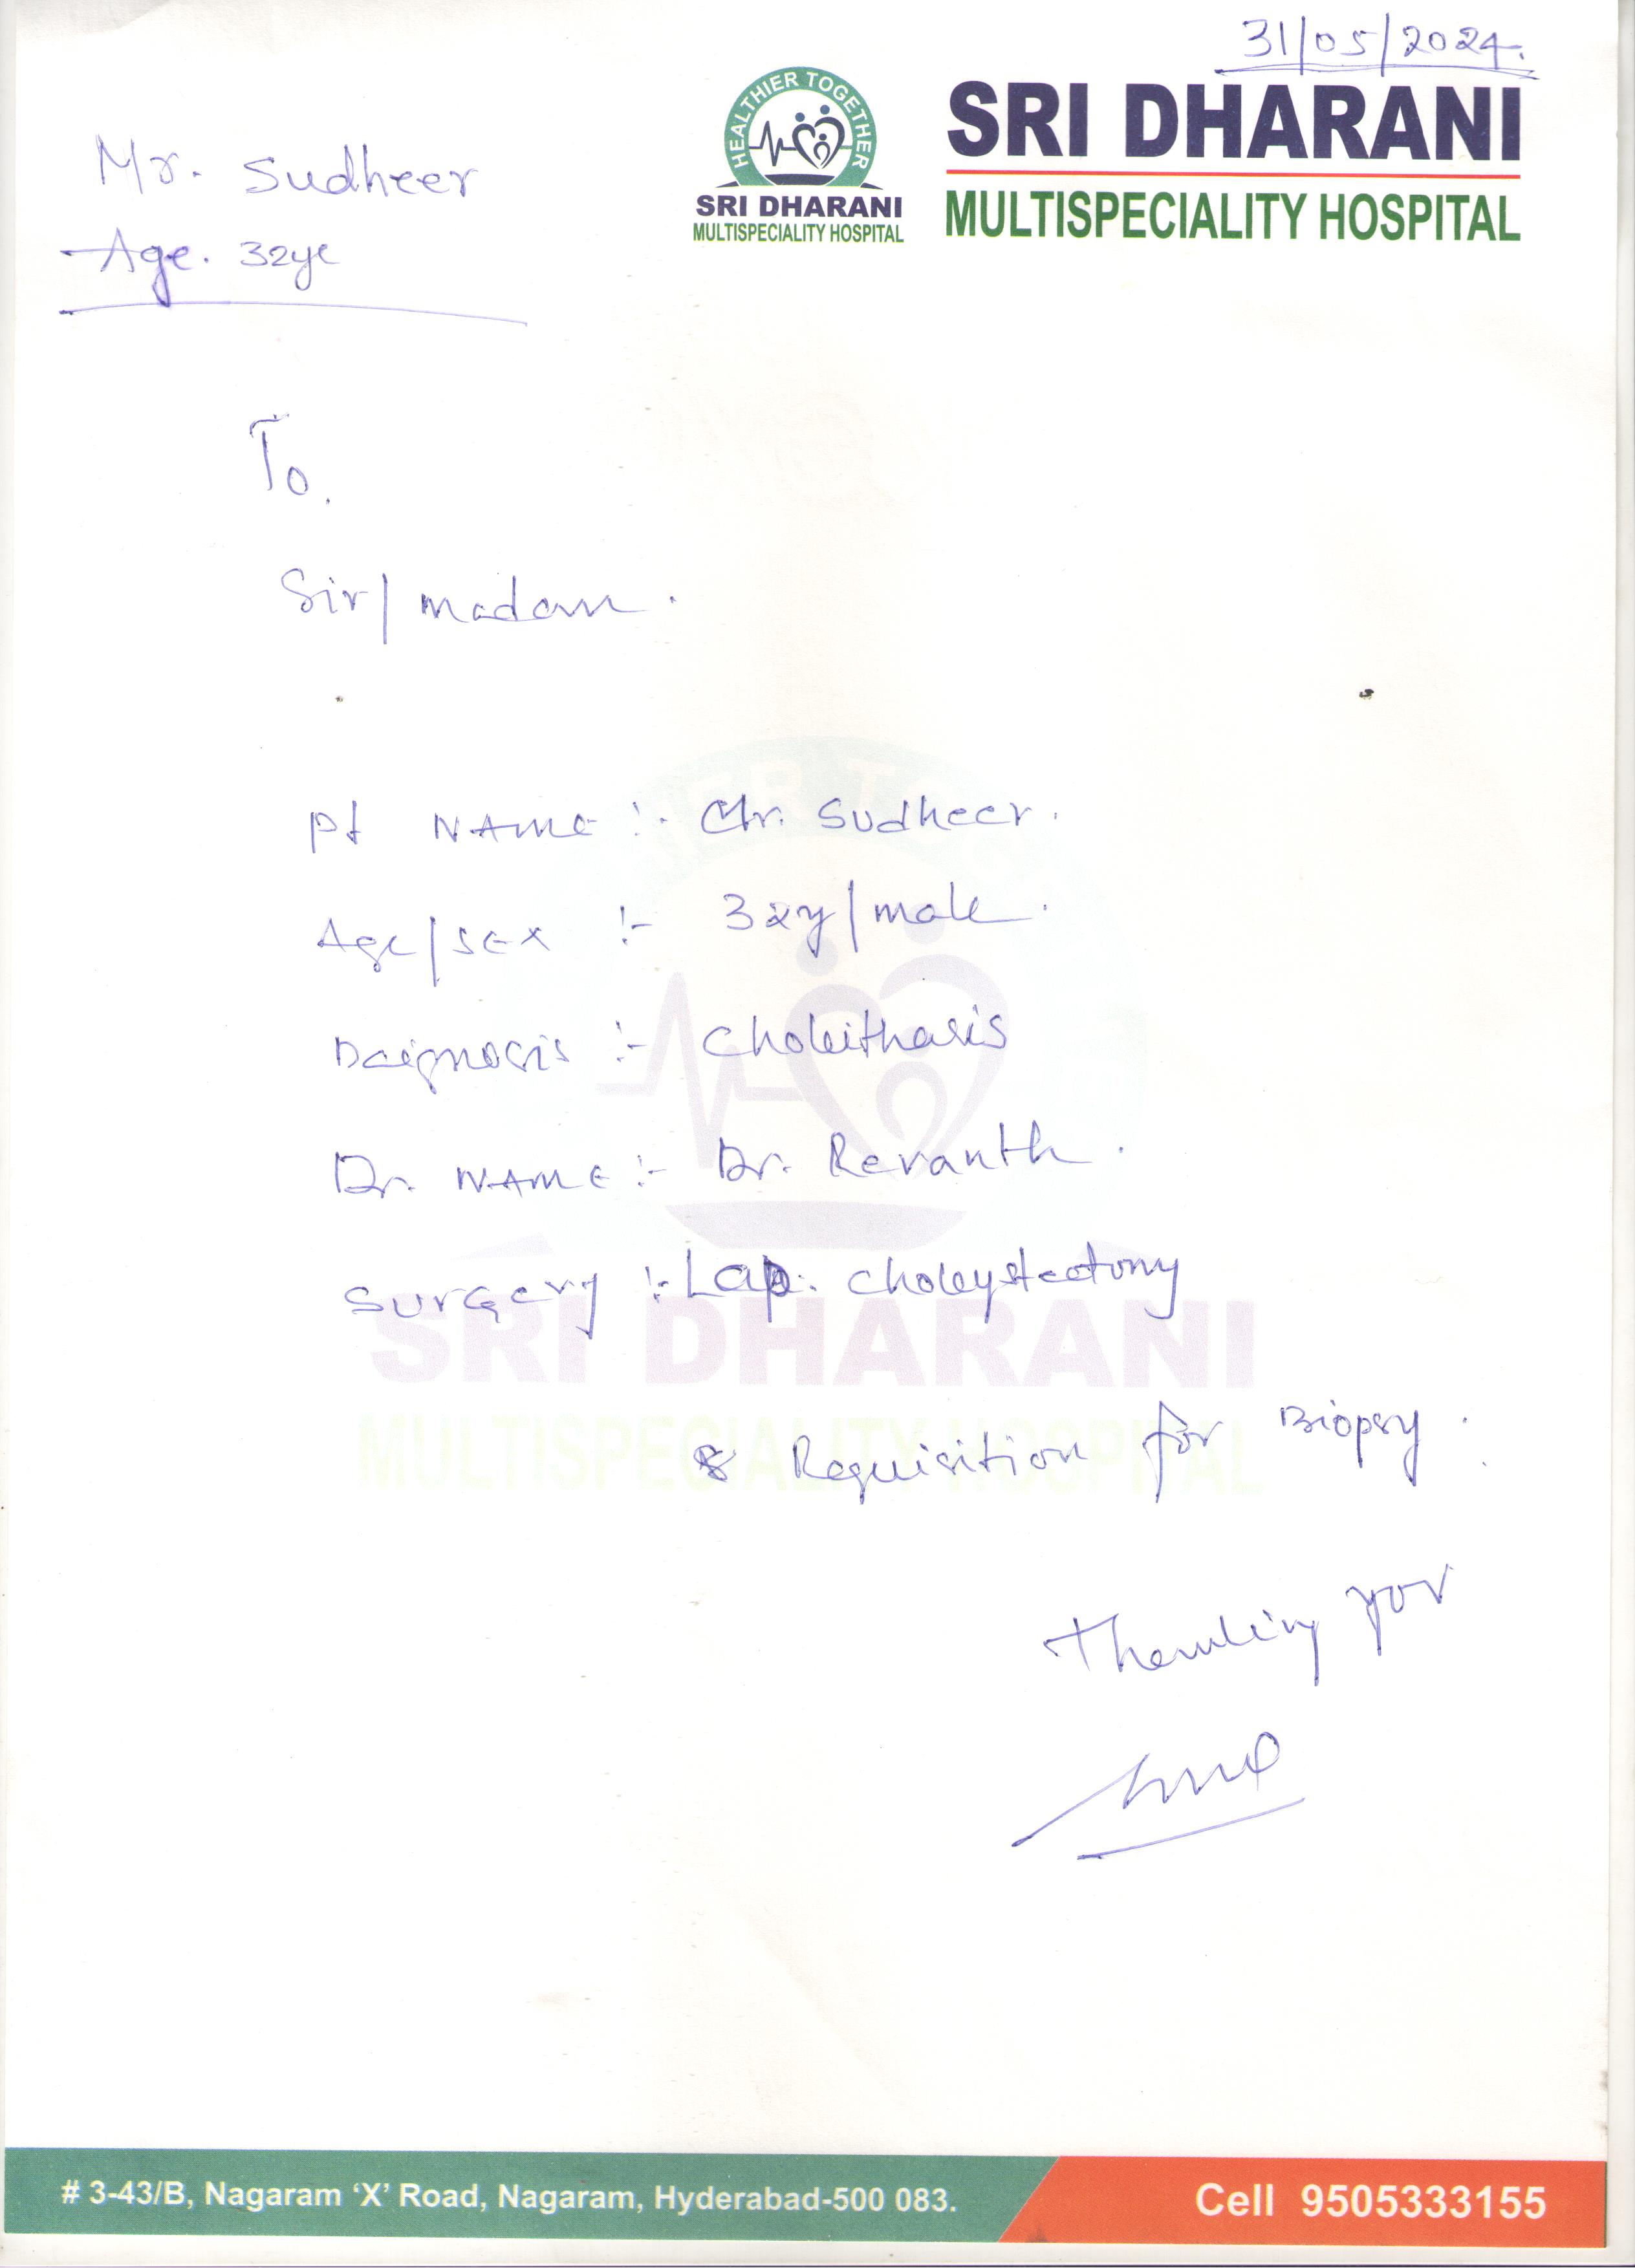 31/05/2024.
HEALTHIER TOGETHER
SRI DHARANI
MULTISPECIALITY HOSPITAL
SRI DHARANI
MULTISPECIALITY HOSPITAL
Mr. Sudheer
Age. 32ye
To.
Sir/ madam.
Pt NAME :- Ch. Sudheer.
Age/SEX :- 32y/male.
Daignosis :- Choleithasis
Dr. NAME :- Dr. Revanth.
Surgery :- Lap. Choleystectomy
SRI DHARANI
MULTISPECIALITY HOSPITAL
& Requisition for Biopsy.
Thanking you
# 3-43/B, Nagaram ‘X’ Road, Nagaram, Hyderabad-500 083.
Cell 9505333155